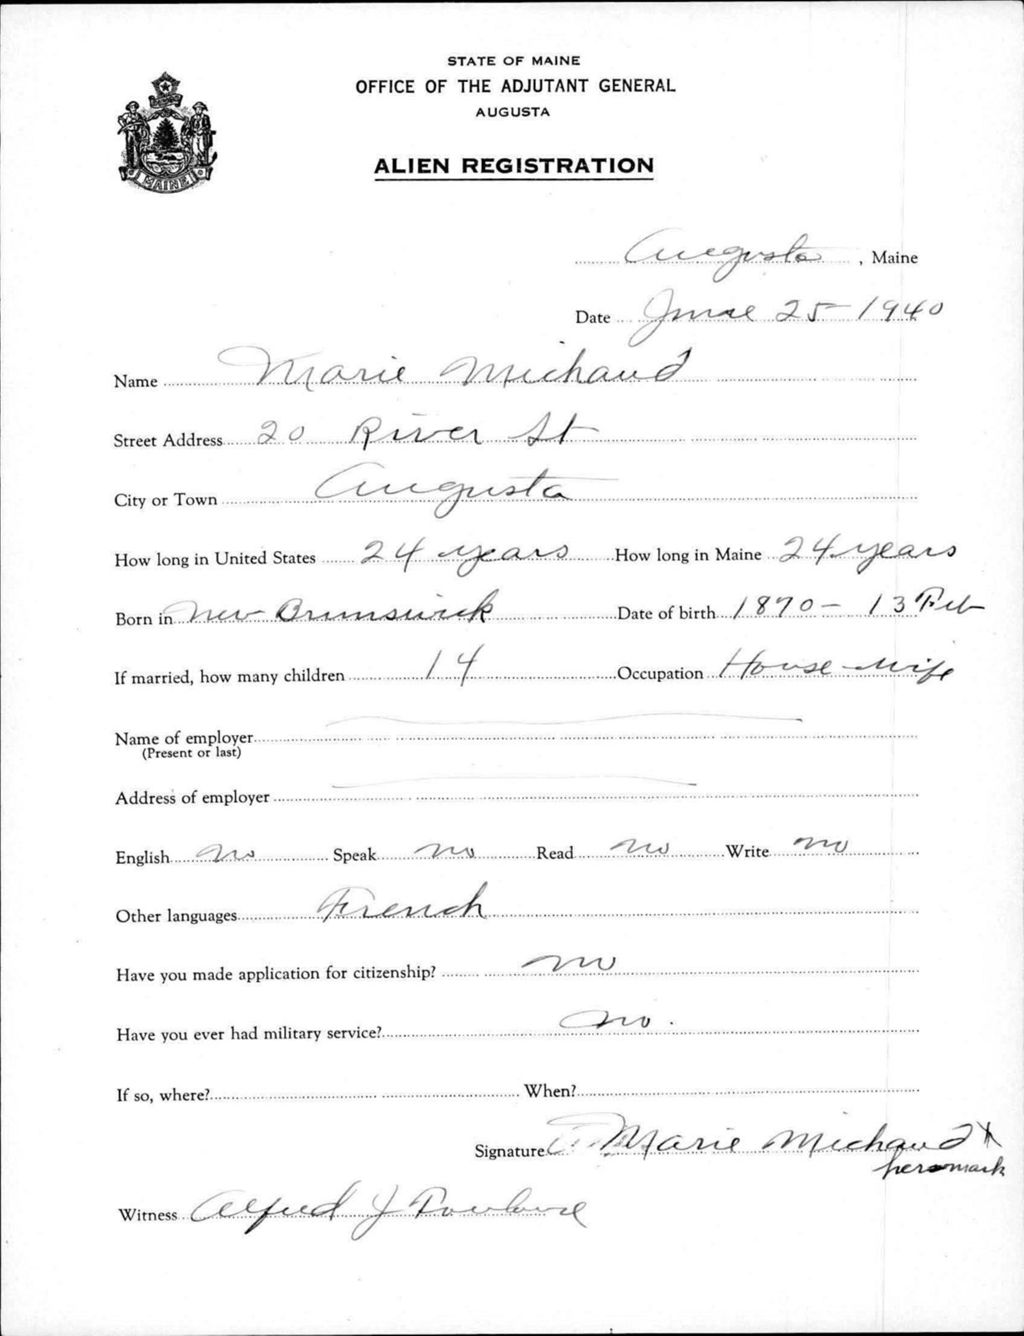 STATE OF MAINE
OFFICE OF THE ADJUTANT GENERAL
AUGUSTA
ALIEN REGISTRATION
MAINE
Augusta, Maine
Date June 25-1940
Name Marie Michaud
Street Address 20 River St
City or Town Augusta
How long in United States 24 years How long in Maine 24 years
Born in New Brunswick Date of birth 1870-13 Feb
If married, how many children 14 Occupation House-wife
Name of employer
(Present or last)
Address of employer
English no Speak no Read no Write no
Other languages French
Have you made application for citizenship? no
Have you ever had military service? no.
If so, where? When?
Signature Marie Michaud X
hersmark
Witness Alfred J